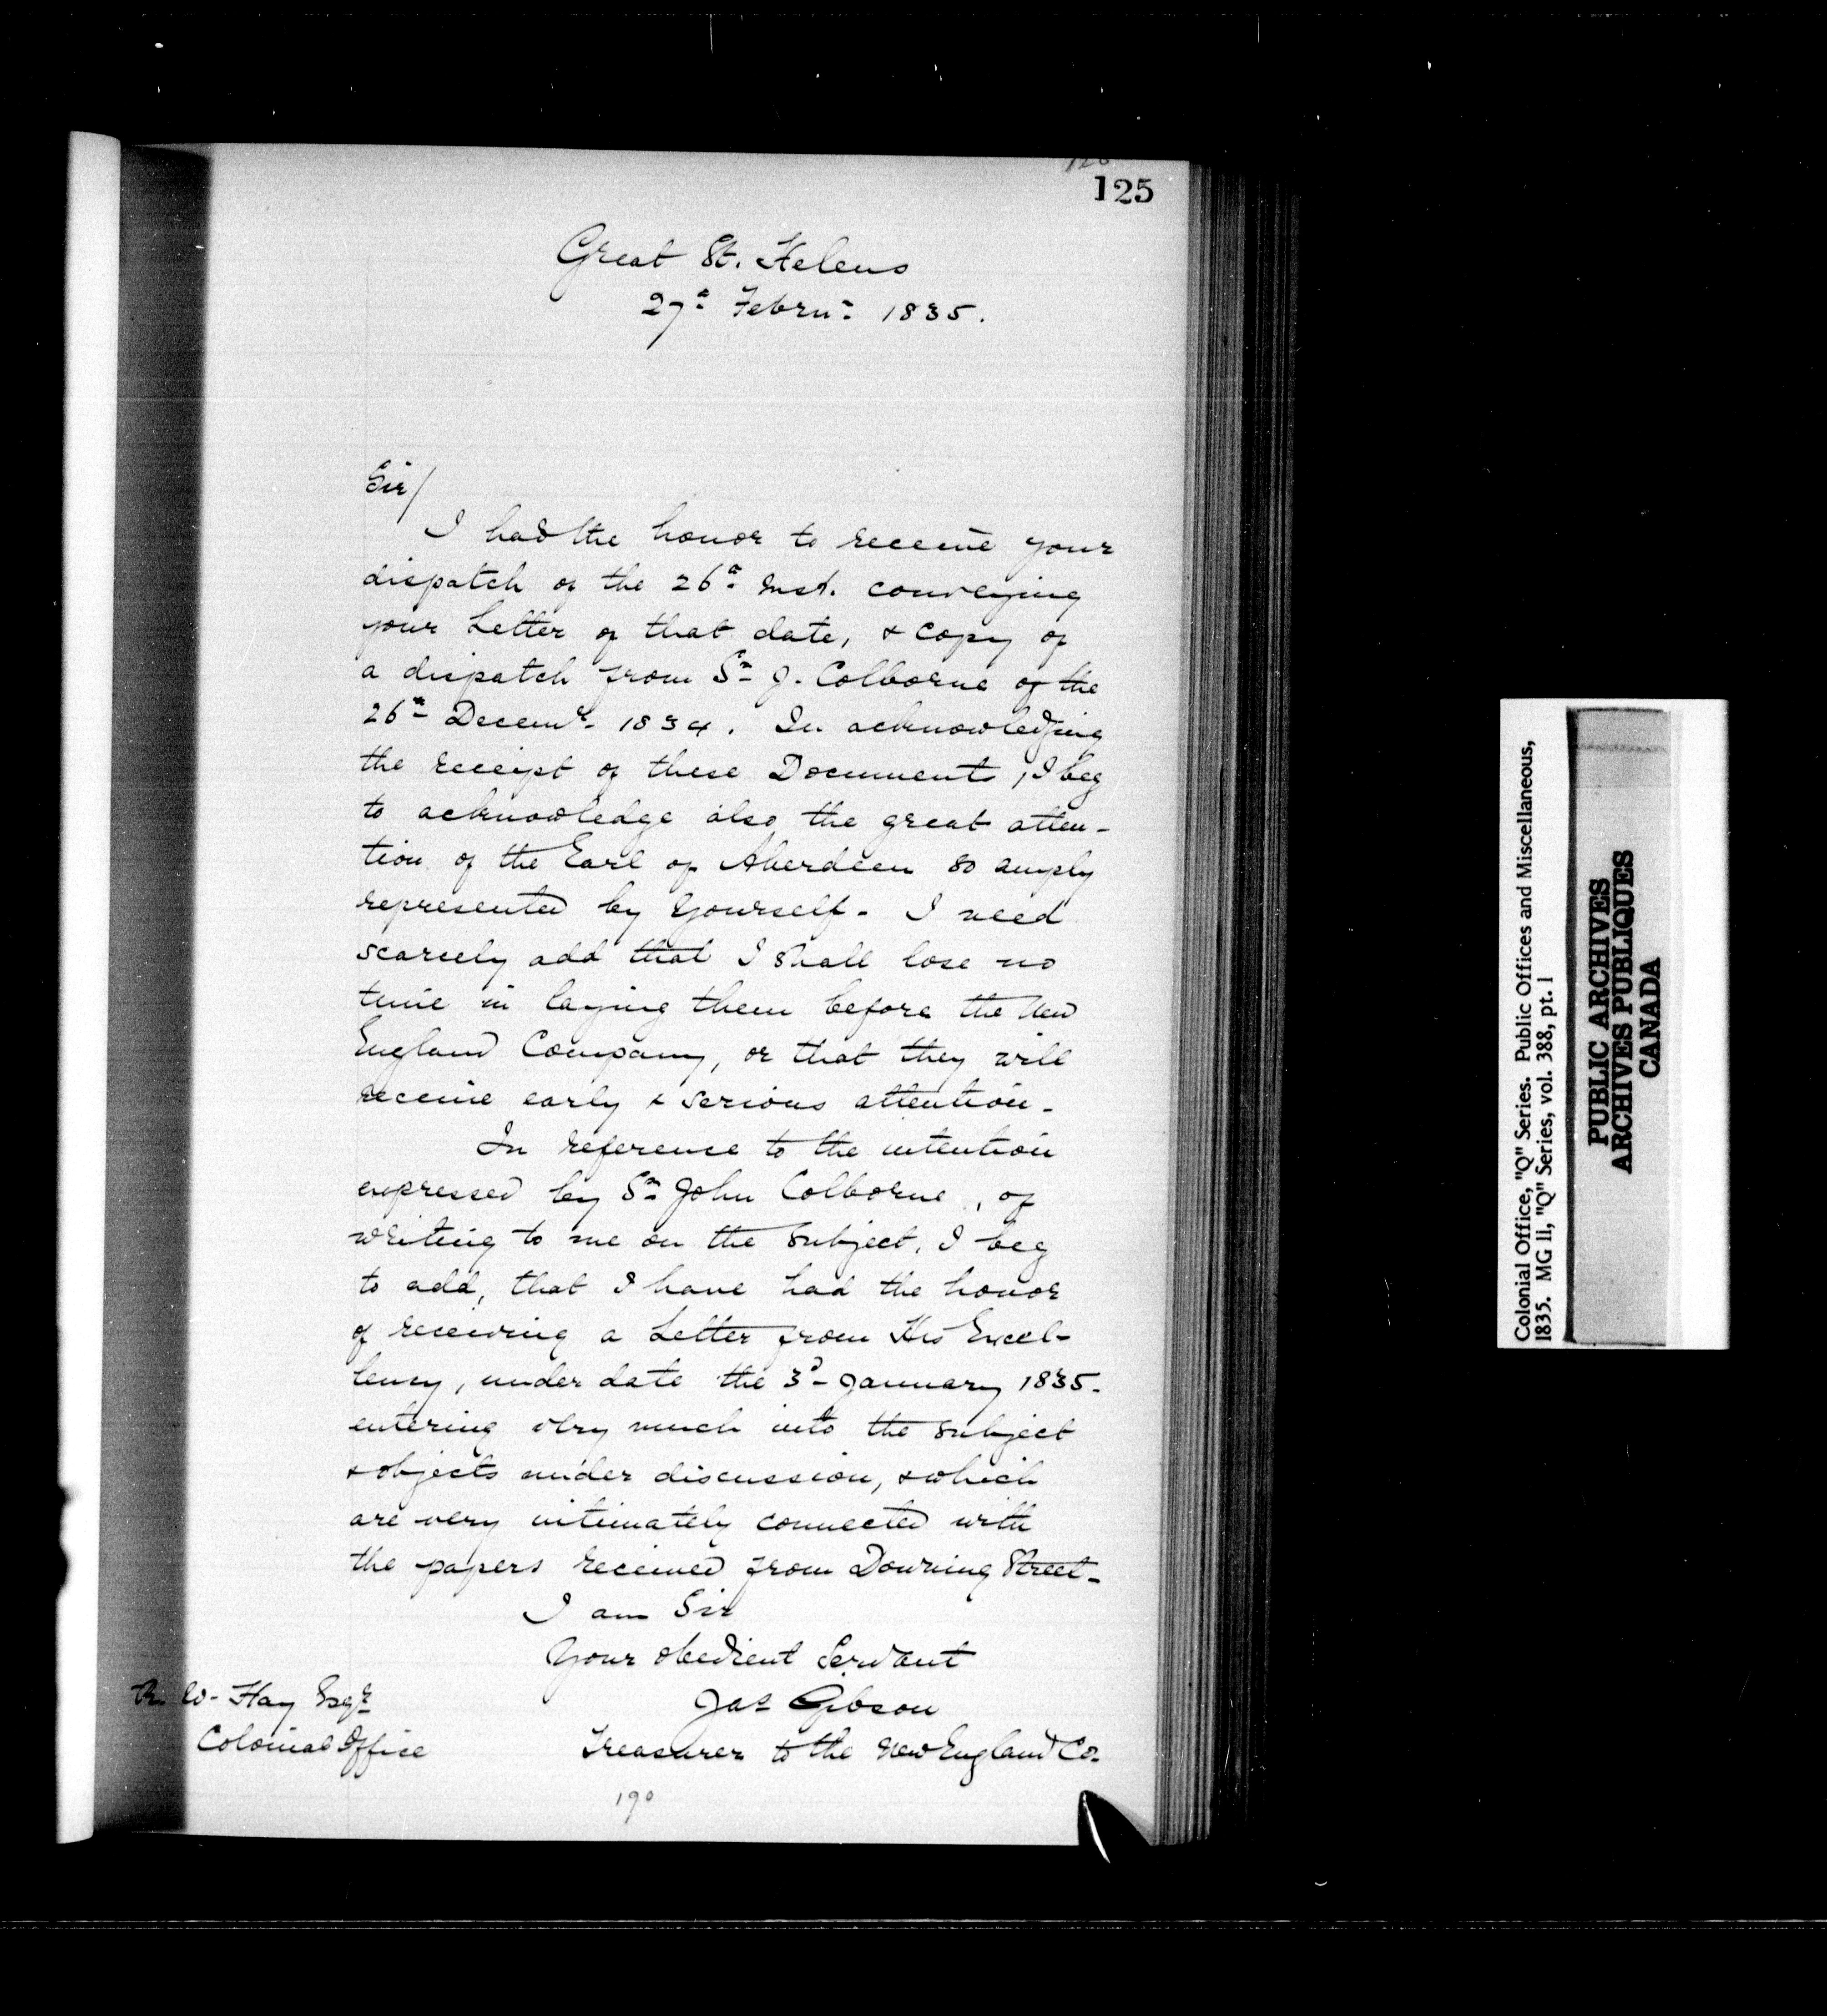 125
Great St. Helens
27th Febru. 1835.
Sir/
I had the honor to receive your
dispatch of the 26th Inst. conveying
your Letter of that date, & Copy of
a dispatch from Sr J. Colborne of the
26th Decemr 1834. In acknowledging
the receipt of these Documents, I beg
to acknowledge also the great atten-
tion of the Earl of Aberdeen so amply
represented by Yourself. I need
scarcely add that I shall lose no
time in laying them before the New
England Company, or that they will
receive early & serious attention.
In reference to the intention
expressed by Sr John Colborne, of
writing to me on the subject, I beg
to add, that I have had the honor
of receiving a Letter from His Excel-
lency, under date the 3d January 1835.
entering very much into the subject
& objects under discussion, & which
are very intimately connected with
the papers received from Downing Street.
I am Sir
Your obedient Servant
Jas Gibson
Treasurer to the New England Co.
R. W. Hay Esqr
Colonial Office
190
Colonial Office, "Q" Series. Public Offices and Miscellaneous,
1835. MG 11, "Q" Series, vol. 388, pt. 1
PUBLIC ARCHIVES
ARCHIVES PUBLIQUES
CANADA